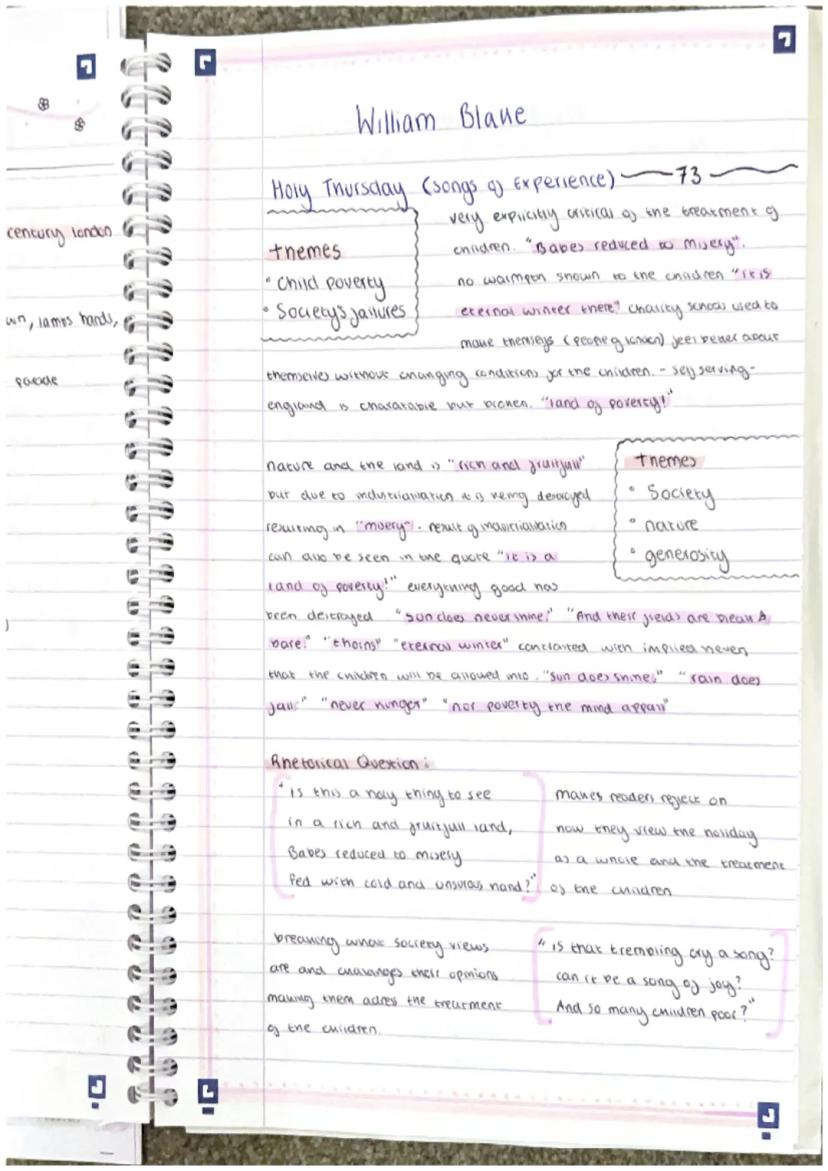 century london
wn, lambs hands,
parade
William Blake
Holy Thursday (songs of Experience) 73
very explicitly critical of the treatment of
children. "Babes reduced to misery".
themes
• Child poverty
• Society's failures
no warmpth shown to the children "it is
eternal winter there!" charity schools used to
make themselves (people of london) feel better about
themselves without changing conditions for the children. - self serving -
england is charatable but broken. "land of poverty!"
nature and the land is "rich and fruitfull"
but due to industrialisation it is being destroyed
resulting in "misery". result of industrialisation
can also be seen in the quote "it is a
land of poverty!" everything good has
themes
• Society
• nature
• generosity
been destroyed "sun does never shine," "And their fields are bleak &
bare." "thorns" "eternal winter" contrasted with implied heaven
that the children will be allowed into. "sun does shine," "rain does
fall:" "never hunger" "nor poverty the mind appall"
Rhetorical Question:
"is this a holy thing to see
in a rich and fruitfull land,
Babes reduced to misery
Fed with cold and usurous hand?"
makes readers reflect on
how they view the holiday
as a whole and the treatment
of the children
breaking what society views
are and challenges their opinions
making them adress the treatment
of the children.
"is that trembling cry a song?
can it be a song of joy?
And so many children poor?"